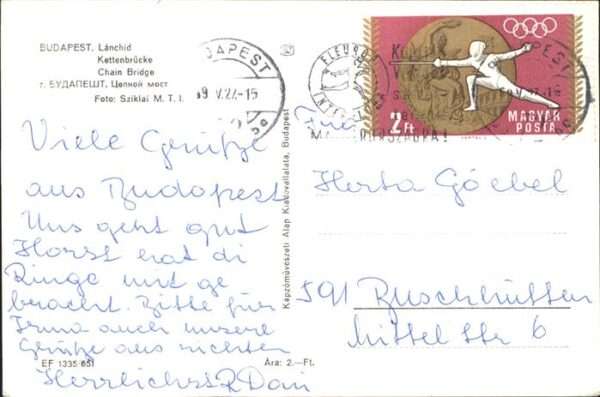 BUDAPEST. Lánchíd
Kettenbrücke
Chain Bridge
г. БУДАПЕШТ. Цепной мост
Foto: Sziklai M. T. I.
BUDAPEST
9 V. 27.-15
2 Ft
MAGYAR
POSTA
Viele Grüße
aus Budapest
Uns geht gut
Horst hat di
Ringe mit ge
bracht. Bitte für
Irma auch unsere
Grüße aus richten
Herrlichst
Frau
Herta Göbel
591 Buschhütten
Mittel Str 6
Képzőművészeti Alap Kiadóvállalata, Budapest
EF 1335/651
Ára: 2.-Ft.